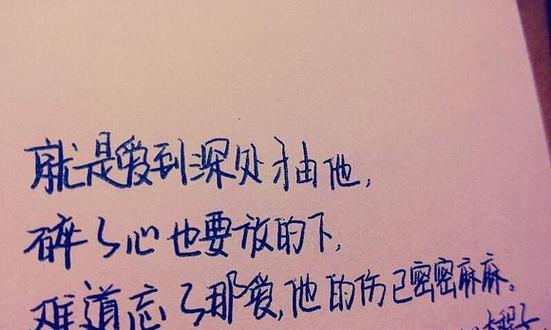 就是爱到深处才由他,
碎了心也要放的下,
难道忘了那爱,他的伤已密密麻麻。